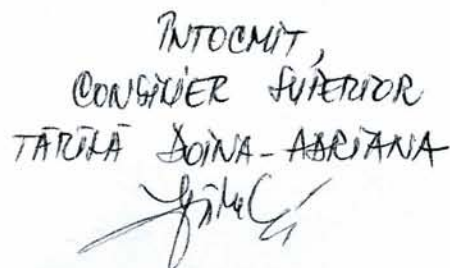 ÎNTOCMIT,
CONSILIER SUPERIOR
DOINA-ADRIANA